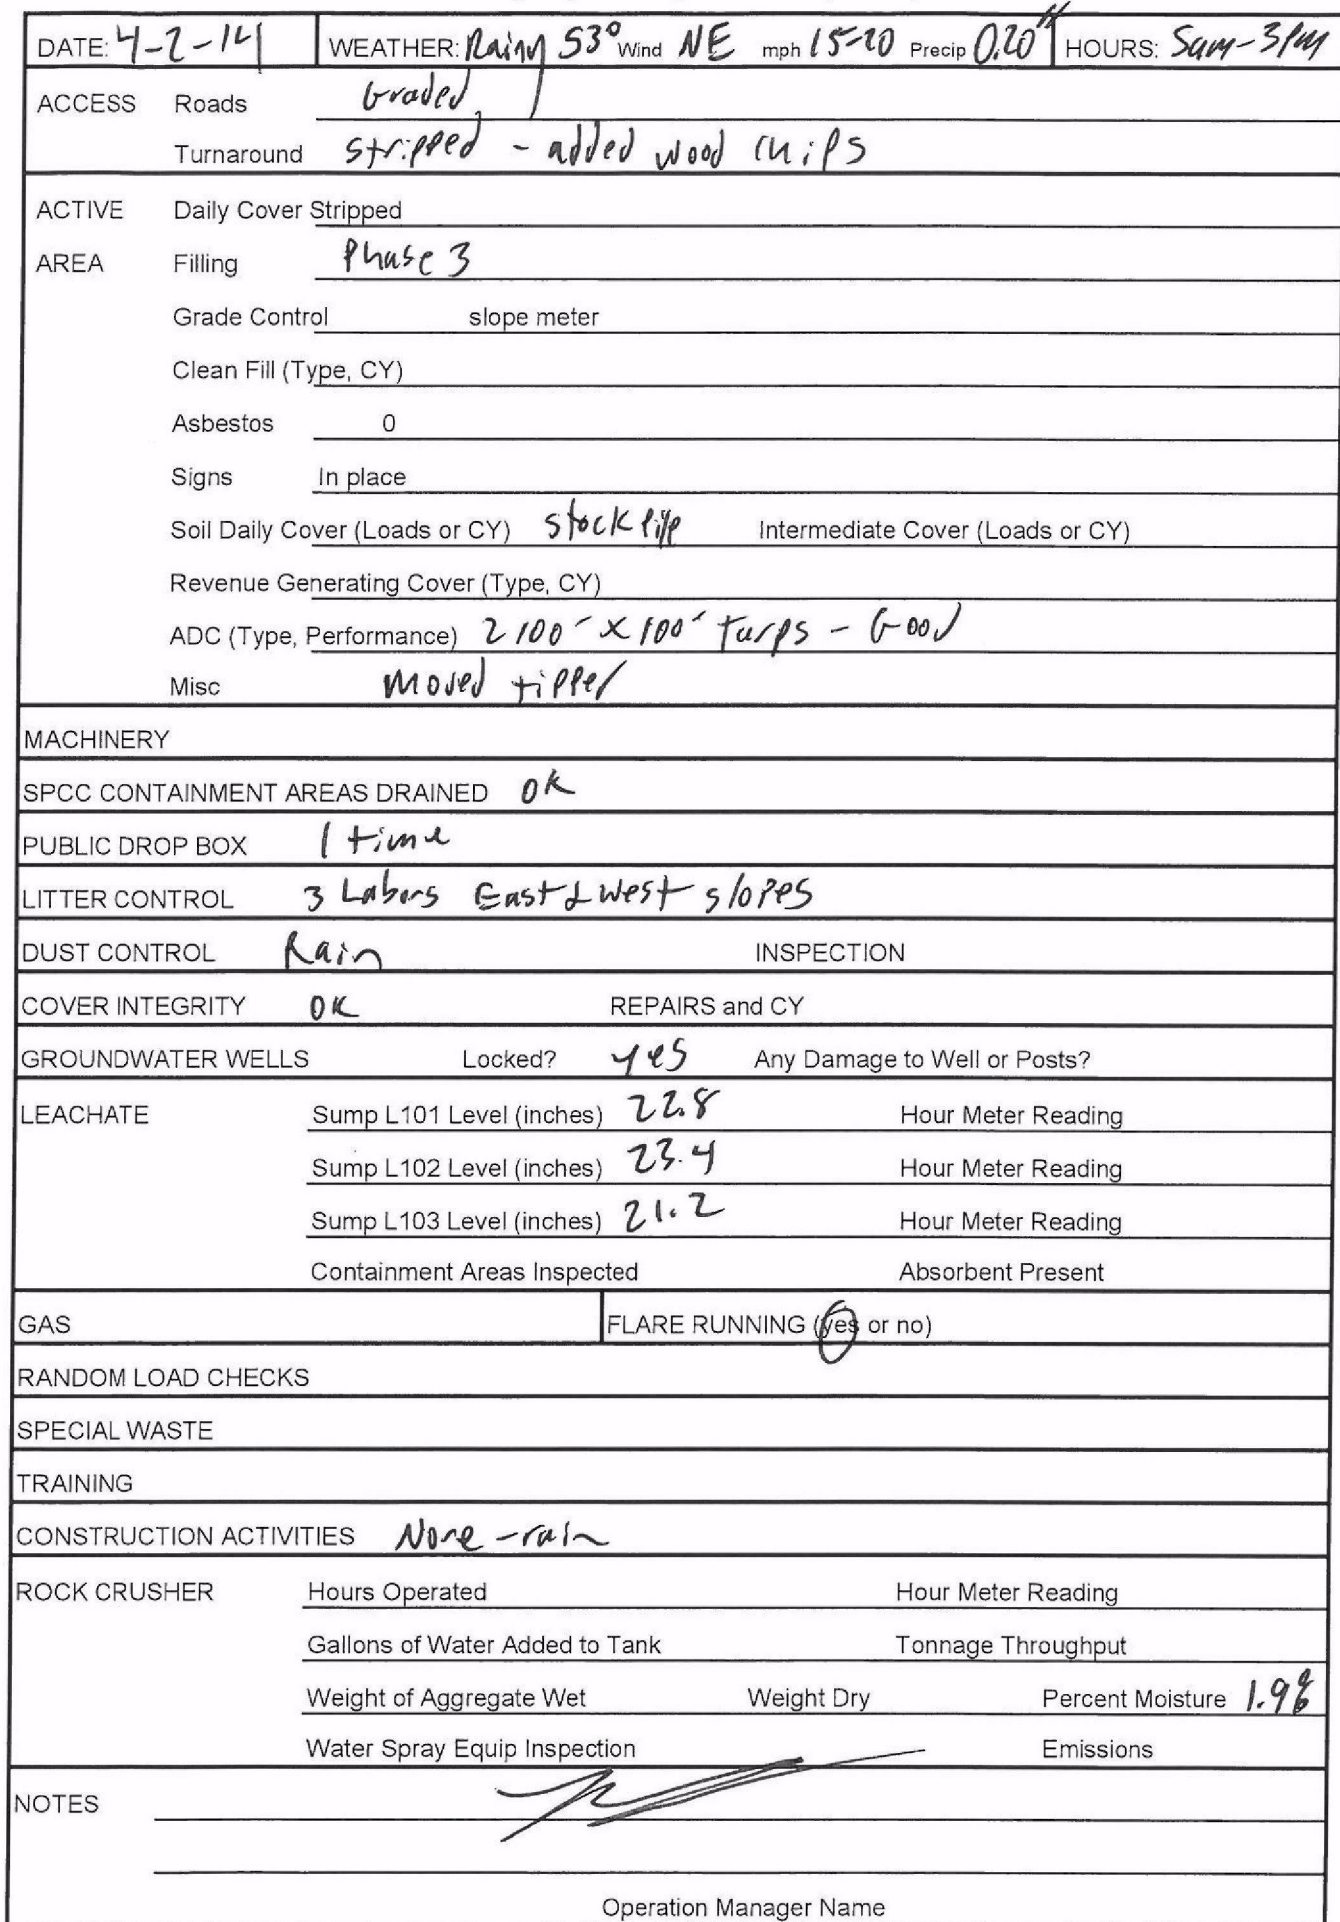 DATE: 4-2-14 WEATHER: Rainy 53° Wind NE mph 15-20 Precip 0.20" HOURS: 5am-3pm
ACCESS Roads Graded
Turnaround stripped - added wood chips
ACTIVE Daily Cover Stripped
AREA Filling Phase 3
Grade Control slope meter
Clean Fill (Type, CY)
Asbestos 0
Signs In place
Soil Daily Cover (Loads or CY) stockpile Intermediate Cover (Loads or CY)
Revenue Generating Cover (Type, CY)
ADC (Type, Performance) 2 100' x 100' tarps - Good
Misc moved tipper
MACHINERY
SPCC CONTAINMENT AREAS DRAINED OK
PUBLIC DROP BOX 1 time
LITTER CONTROL 3 Labors East & West slopes
DUST CONTROL Rain INSPECTION
COVER INTEGRITY OK REPAIRS and CY
GROUNDWATER WELLS Locked? yes Any Damage to Well or Posts?
LEACHATE Sump L101 Level (inches) 22.8 Hour Meter Reading
Sump L102 Level (inches) 23.4 Hour Meter Reading
Sump L103 Level (inches) 21.2 Hour Meter Reading
Containment Areas Inspected Absorbent Present
GAS FLARE RUNNING (yes or no)
RANDOM LOAD CHECKS
SPECIAL WASTE
TRAINING
CONSTRUCTION ACTIVITIES None - rain
ROCK CRUSHER Hours Operated Hour Meter Reading
Gallons of Water Added to Tank Tonnage Throughput
Weight of Aggregate Wet Weight Dry Percent Moisture 1.9%
Water Spray Equip Inspection Emissions
NOTES
Operation Manager Name